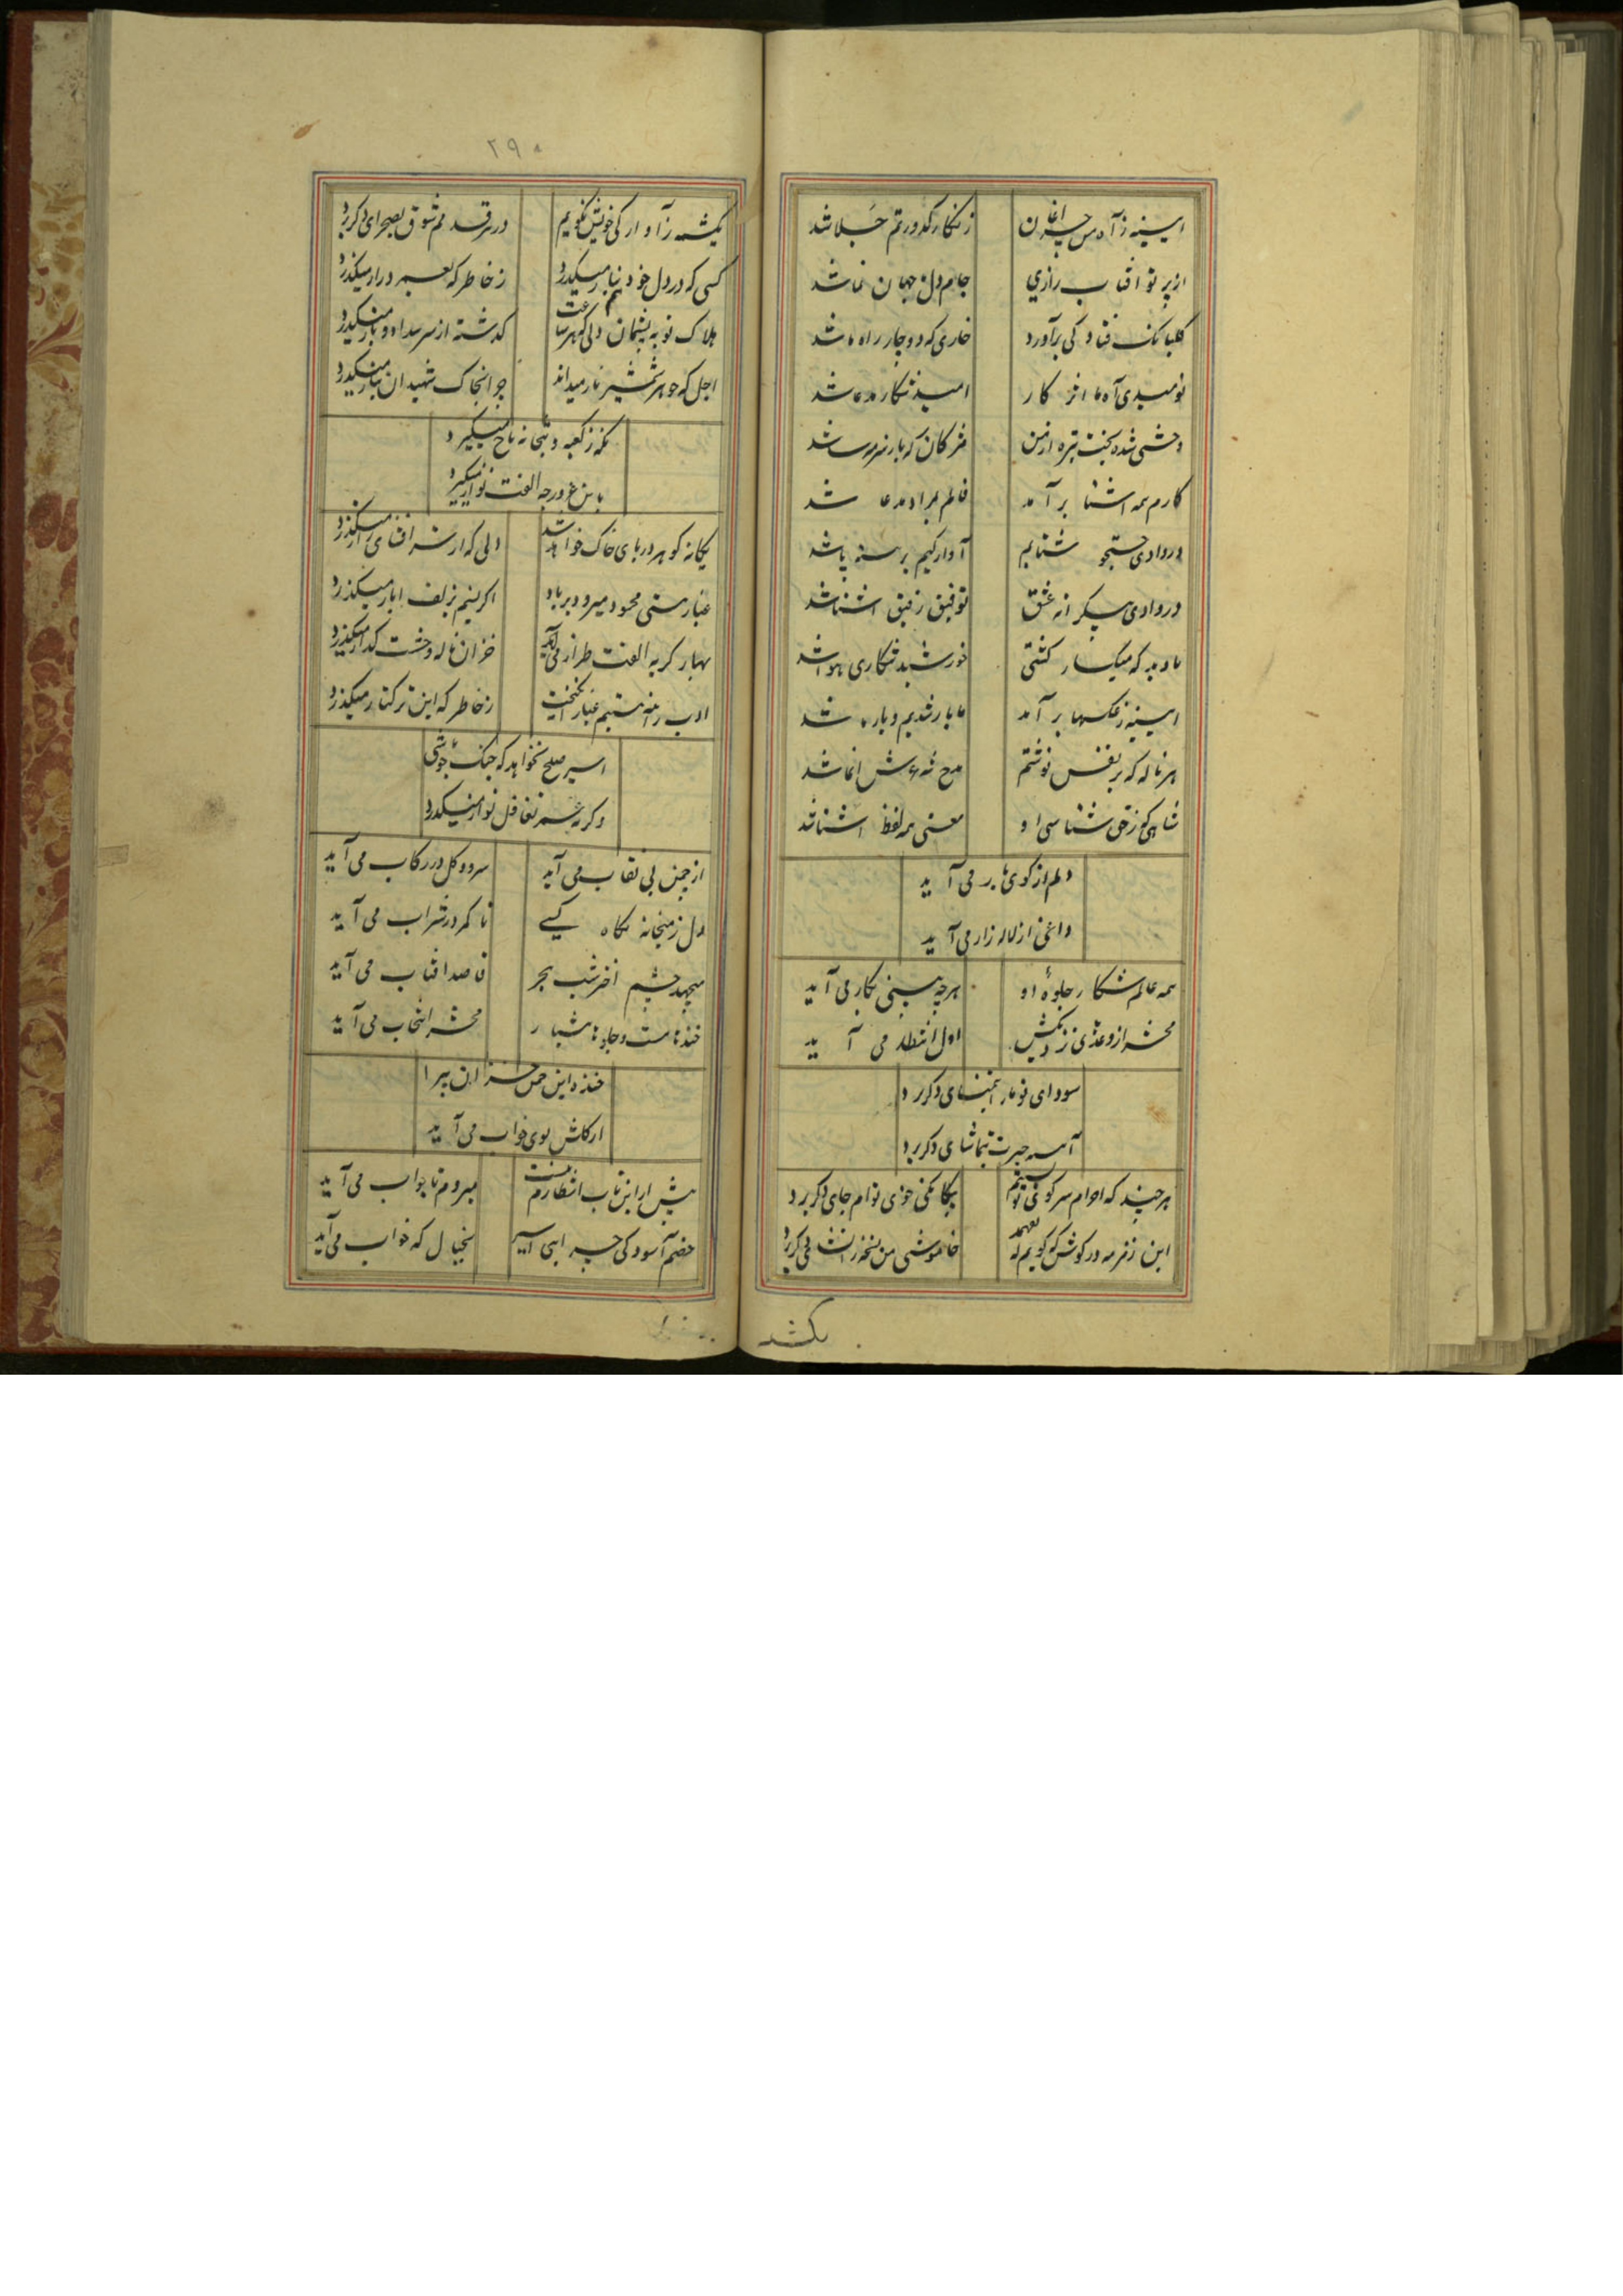 آیینه ز آه من چراغان
زنگار کدورتم جلا شد
از پرتو آفتاب رازی
جام دل جهان نما شد
گلبانگ فتاد کی برآورد
خاری که دوچار راه ما شد
نومیدی آه ما اثر کار
امید شکار مدعا شد
وحشی شده بخت تیره از من
مژگان که باز سرمه سا شد
کارم همه آشنا برآمد
فالم بمراد مدعا شد
در وادی جستجو شتابم
آوارگیم برهنه پا شد
در وادی بیکرانه عشق
توفیق رفیق آشنا شد
بادیه که میکسار کشتی
خورشید شکاری هوا شد
آیینه ز عکسها برآمد
ما یار شدیم و یار ما شد
هر ناله که بر نفس نوشتم
مدح شه عرش انما شد
شاهی که ز حق شناسی او
معنی همه لفظ آشنا شد
دلم از کوی یار می آید
داغی از لاله زار می آید
همه عالم شکار جلوه او
هرچه بینی بکار می آید
محشر از وعده ی نزدیکش
اول انتظار می آید
سودای تو ما را بتمنای دگر برد
آیینه حیرت بتماشای دگر برد
هر چند که احرام سر کوی تو بستم
بیگانگی خوی توام جای دگر برد
این زمزمه در گوش که گویم که نفهمد
خاموشی من نسخه ز انشای دگر برد
یکشمه
۲۹۰
یکشمه ز آوارگی خویش نگویم
در هر قدمم شوق بصحرای دگر برد
کسی که در دل خود بتا نمیگذرد
ز خاطر که بعمر دراز میگذرد
هلاک توبه پشیمان دلی که هر ساعت
گذشته از سر پیدا و باز میگذرد
اجل که جوهر شمشیر ناز میداند
چو از خاک شهیدان بناز میگذرد
نکه ز کعبه و بتخانه باج میگیرد
باین غرور چه الفت نواز میگذرد
یگانه گوهر دریای خاک خواهد شد
دلی که از سر افشای راز میگذرد
غبار هستی محمود میرود بر باد
اگر نسیم بزلف ایاز میگذرد
بهار گریه الفت طراز می آید
خزان ناله وحشت گداز میگذرد
ادب زمزمه بستیم غبار انگیخت
ز خاطر که این ترکتاز میگذرد
اسیر صلح نخواهد که جنگ جوشی
و گر نه از سر تغافل تو از میگذرد
از چمن بی نقاب می آید
سرو و گل در رکاب می آید
دل ز میخانه نگاه کسی
تا کمر در شراب می آید
میجهد چشم اختر شب هجر
قاصد آفتاب می آید
خنده ها مست و جلوه ها سرشار
محشر انتخاب می آید
خنده این چمن خزان پیرا
از گلش بوی خواب می آید
بیش از این تاب انتظارم نیست
میروم تا جواب می آید
خصم آسودگی چرایی اسیر
بخیال که خواب می آید